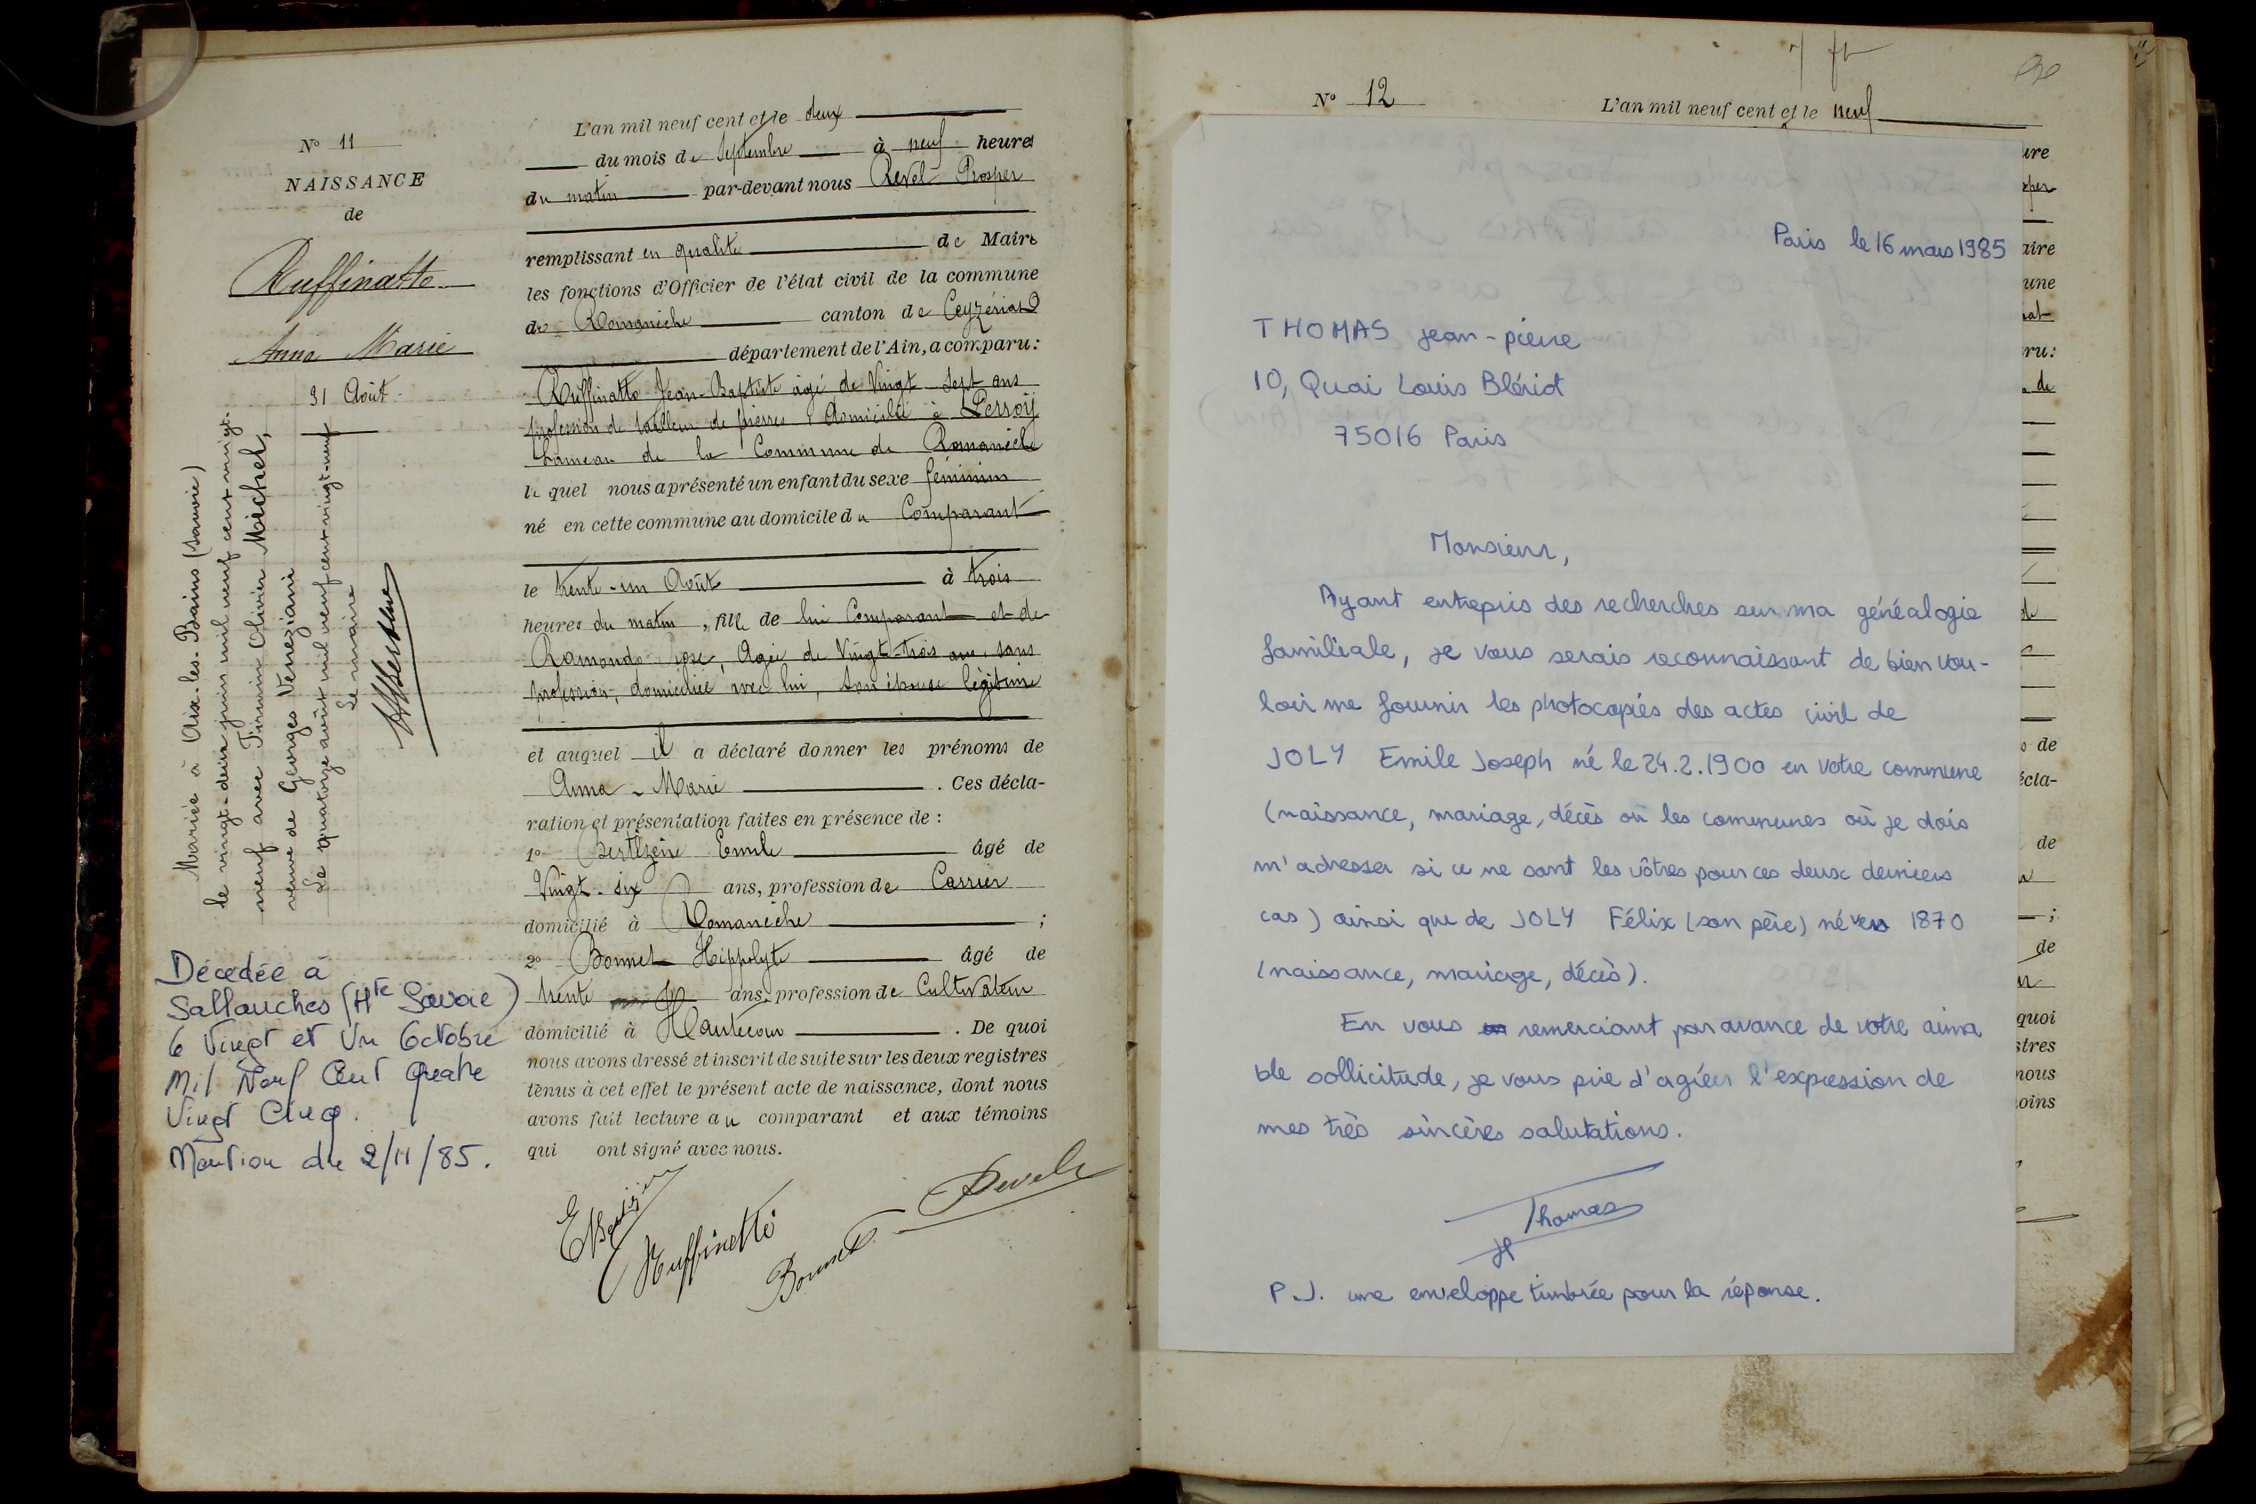 N° 11
NAISSANCE
de
Ruffinatto
Anna Marie
31 Août
Mariée à Aix-les-Bains (Savoie)
le vingt-deux juin mil neuf cent vingt-
neuf avec Firmin Olivier Michel,
veuve de Georges Veneziani
Le quatorze août mil neuf cent vingt-neuf
Le maire
Décédée à
Sallanches (Hte Savoie)
le Vingt et Un Octobre
Mil Neuf Cent Quatre
Vingt Cinq.
Mention du 2/11/85.
L'an mil neuf cent et le deux
du mois de Septembre à neuf heures
du matin par-devant nous Revel Prosper
remplissant en qualité de Maire
les fonctions d'Officier de l'état civil de la commune
de Romanèche canton de Ceyzériat
département de l'Ain, a comparu:
Ruffinatto Jean-Baptiste âgé de Vingt-Sept ans
profession de tailleur de pierres domicilié à
hameau de la Commune de Romanèche
le quel nous a présenté un enfant du sexe féminin
né en cette commune au domicile du Comparant
le trente-un Août à trois
heures du matin, fille de lui Comparant et de
Ramondo rose, Agée de Vingt-trois ans, sans
profession, domiciliée avec lui, son épouse légitime
et auquel il a déclaré donner les prénoms de
Anna-Marie. Ces décla-
ration et présentation faites en présence de:
1° Emile âgé de
Vingt-six ans, profession de Carrier
domicilié à Romanèche;
2° Bonnet Hippolyte âgé de
trente ans, profession de Cultivateur
domicilié à Hautecour. De quoi
nous avons dressé et inscrit de suite sur les deux registres
tenus à cet effet le présent acte de naissance, dont nous
avons fait lecture au comparant et aux témoins
qui ont signé avec nous.
Ruffinatto
Bonnet
Revel
N° 12
L'an mil neuf cent et le neuf
Paris le 16 mars 1985
THOMAS jean-pierre
10, Quai Louis Blériot
75016 Paris
Monsieur,
Ayant entrepris des recherches sur ma généalogie
familiale, je vous serais reconnaissant de bien vou-
loir me fournir les photocopiés des actes civil de
JOLY Emile Joseph né le 24.2.1900 en votre commune
(naissance, mariage, décès ou les communes où je dois
m'adresser si ce ne sont les vôtres pour ces deux derniers
cas) ainsi que de JOLY Félix (son père) né vers 1870
(naissance, mariage, décès).
En vous remerciant par avance de votre aima
ble sollicitude, je vous prie d'agréer l'expression de
mes très sincères salutations.
Thomas
JP
P.J. une enveloppe timbrée pour la réponse.